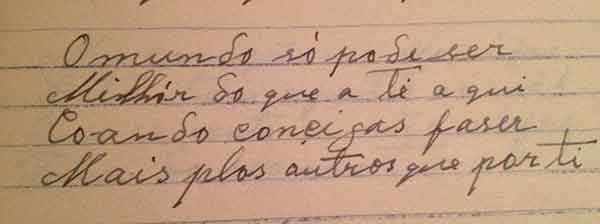 O mundo só pode ser
Milhór do que a té a qui
Coando conçigas faser
Mais plos autros que por ti